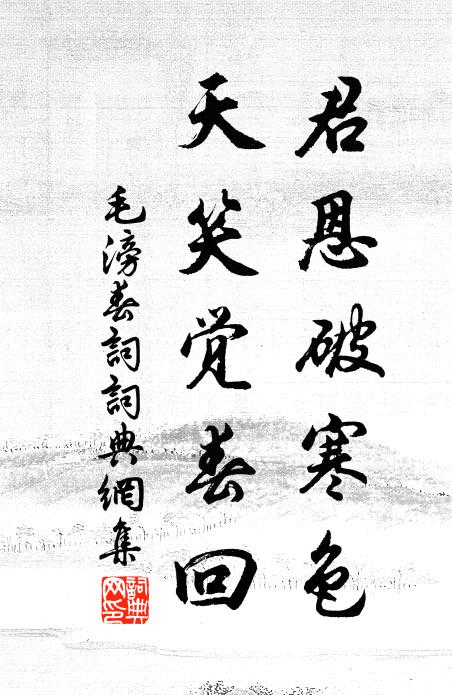 君恩破寒色
天笑觉春回
毛滂春詞詞典網集
詞典网印